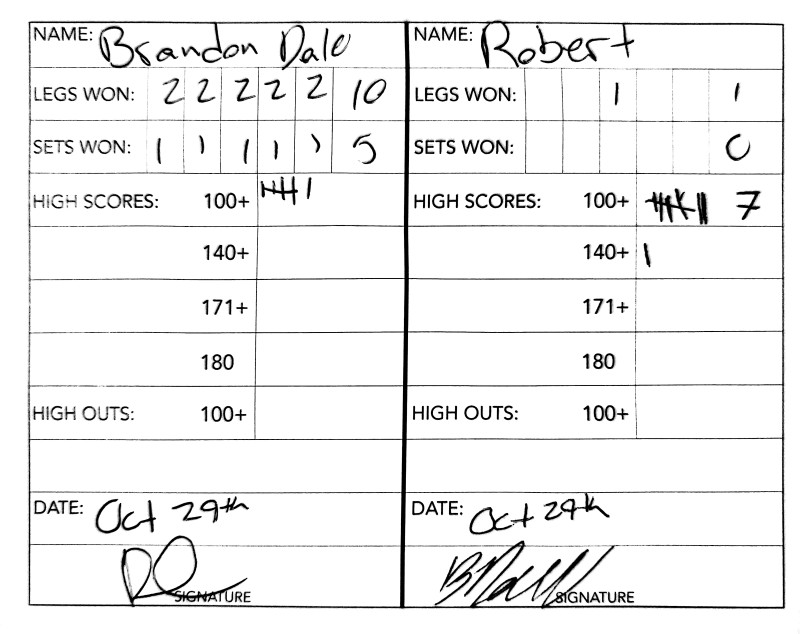 NAME: Brandon Dale
LEGS WON: 2 2 2 2 2 10
SETS WON: 1 1 1 1 1 5
HIGH SCORES: 100+
140+
171+
180
HIGH OUTS: 100+
DATE: Oct 29th
SIGNATURE
NAME: Robert
LEGS WON: 1 1
SETS WON: 0
HIGH SCORES: 100+ 7
140+ 1
171+
180
HIGH OUTS: 100+
DATE: Oct 29th
SIGNATURE